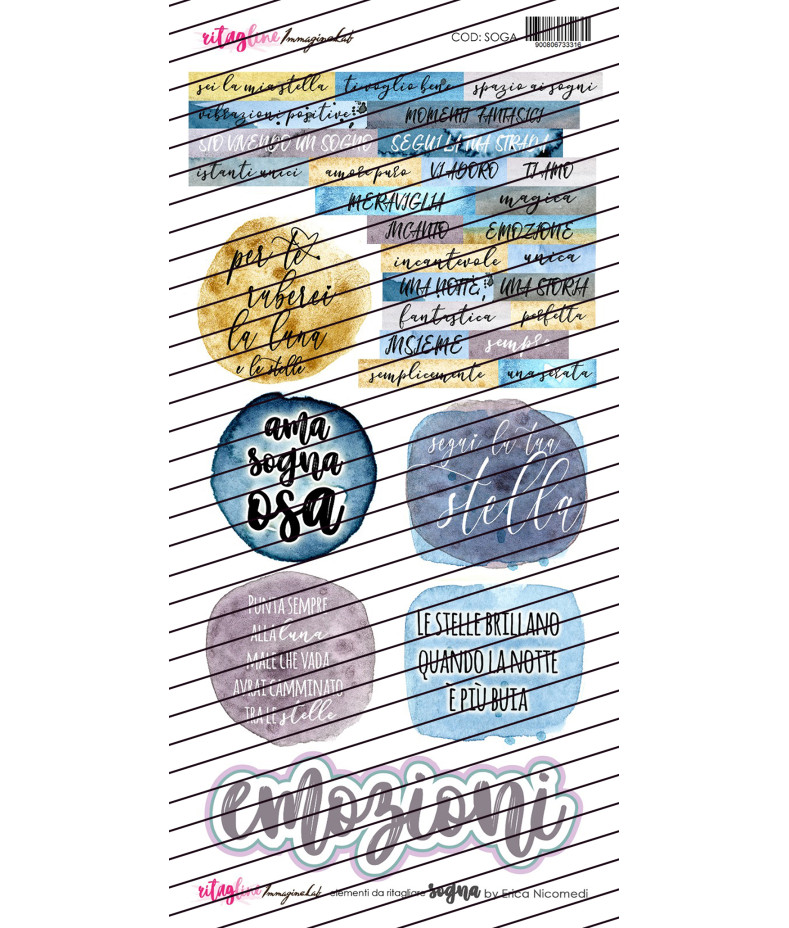 ritagline ImmaginaLab COD: SOGA
900806733316
sei la mia stella ti voglio bene spazio ai sogni
vibrazioni positive MOMENTI FANTASICI
STO VIVENDO UN SOGNO SEGUI LA TUA STRADA
istanti unici amore puro VI ADORO TI AMO
MERAVIGLIA magica
INCANTO EMOZIONE
incantevole unica
UNA NOTTE UNA STORIA
fantastica perfetta
INSIEME sempre
semplicemente una serata
per te
ruberei
la luna
e le stelle
ama
sogna
osa
segui la tua
stella
PUNTA SEMPRE
ALLA luna
MALE CHE VADA
AVRAI CAMMINATO
TRA LE stelle
LE STELLE BRILLANO
QUANDO LA NOTTE
È PIÙ BUIA
emozioni
ritagline ImmaginaLab elementi da ritagliare sogna by Erica Nicomedi